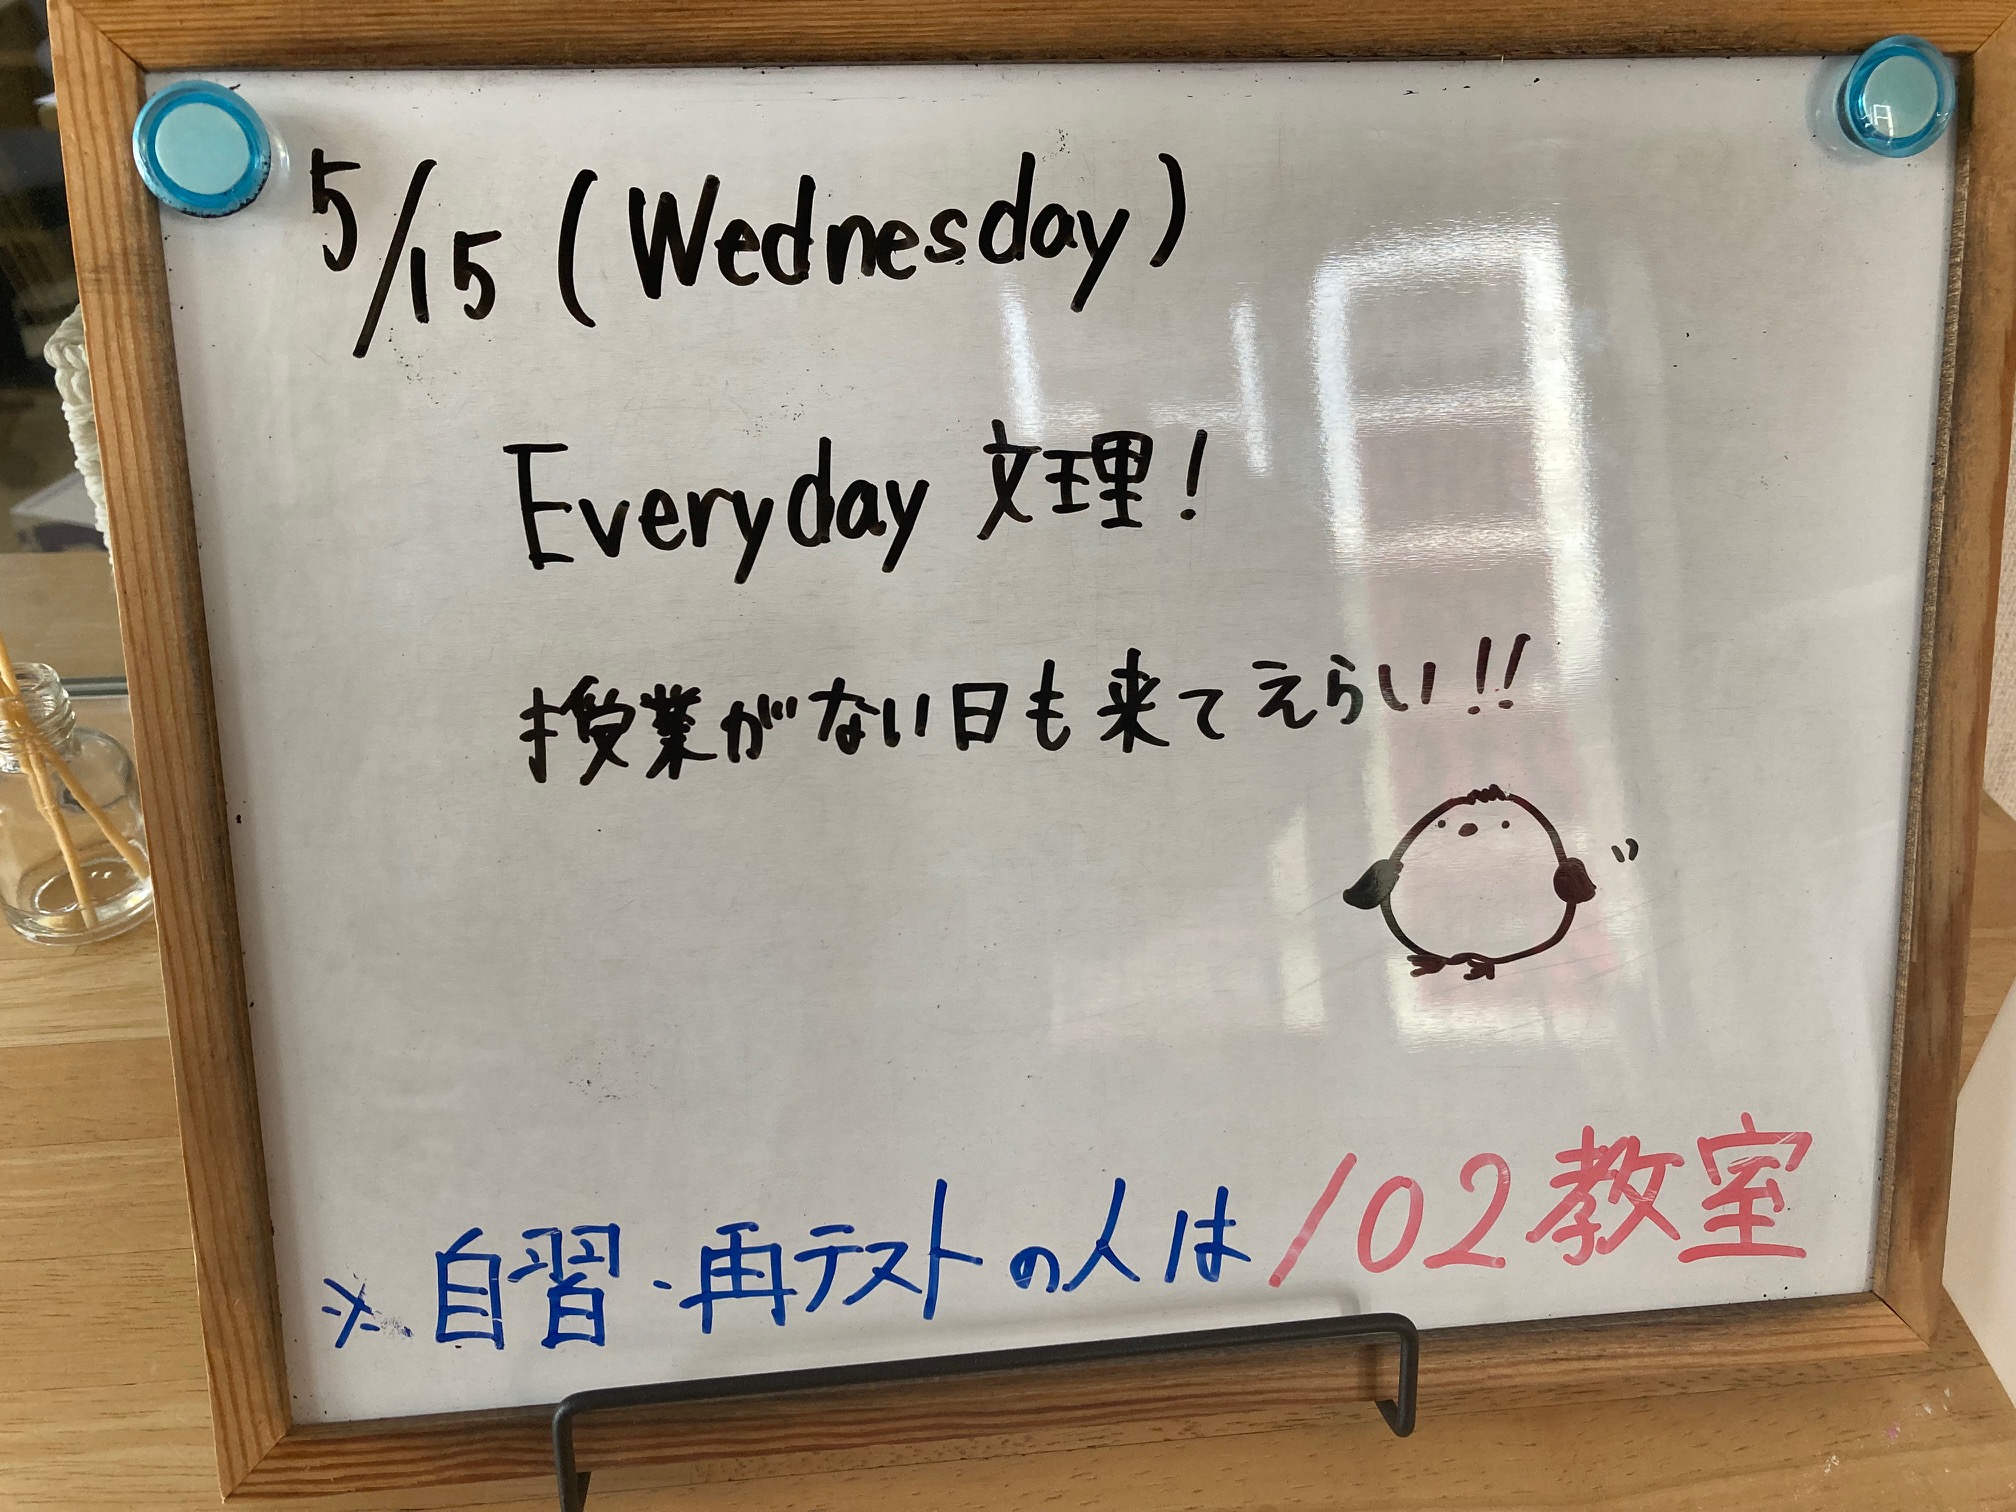 5/15 (Wednesday)
Everyday 文理!
授業がない日も来てえらい!!
※自習・再テストの人は102教室